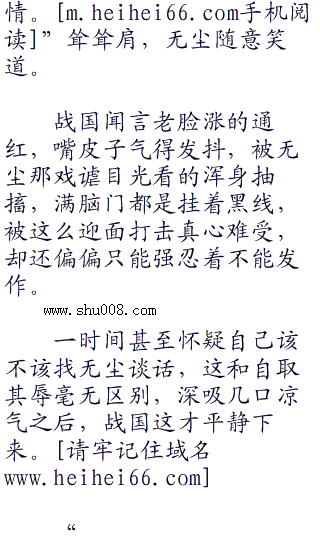 情。[m.heihei66.com手机阅
读]”耸耸肩，无尘随意笑
道。
战国闻言老脸涨的通
红，嘴皮子气得发抖，被无
尘那戏谑目光看的浑身抽
搐，满脑门都是挂着黑线，
被这么迎面打击真心难受，
却还偏偏只能强忍着不能发
作。
www.shu008.com
一时间甚至怀疑自己该
不该找无尘谈话，这和自取
其辱毫无区别，深吸几口凉
气之后，战国这才平静下
来。[请牢记住域名
www.heihei66.com]
“